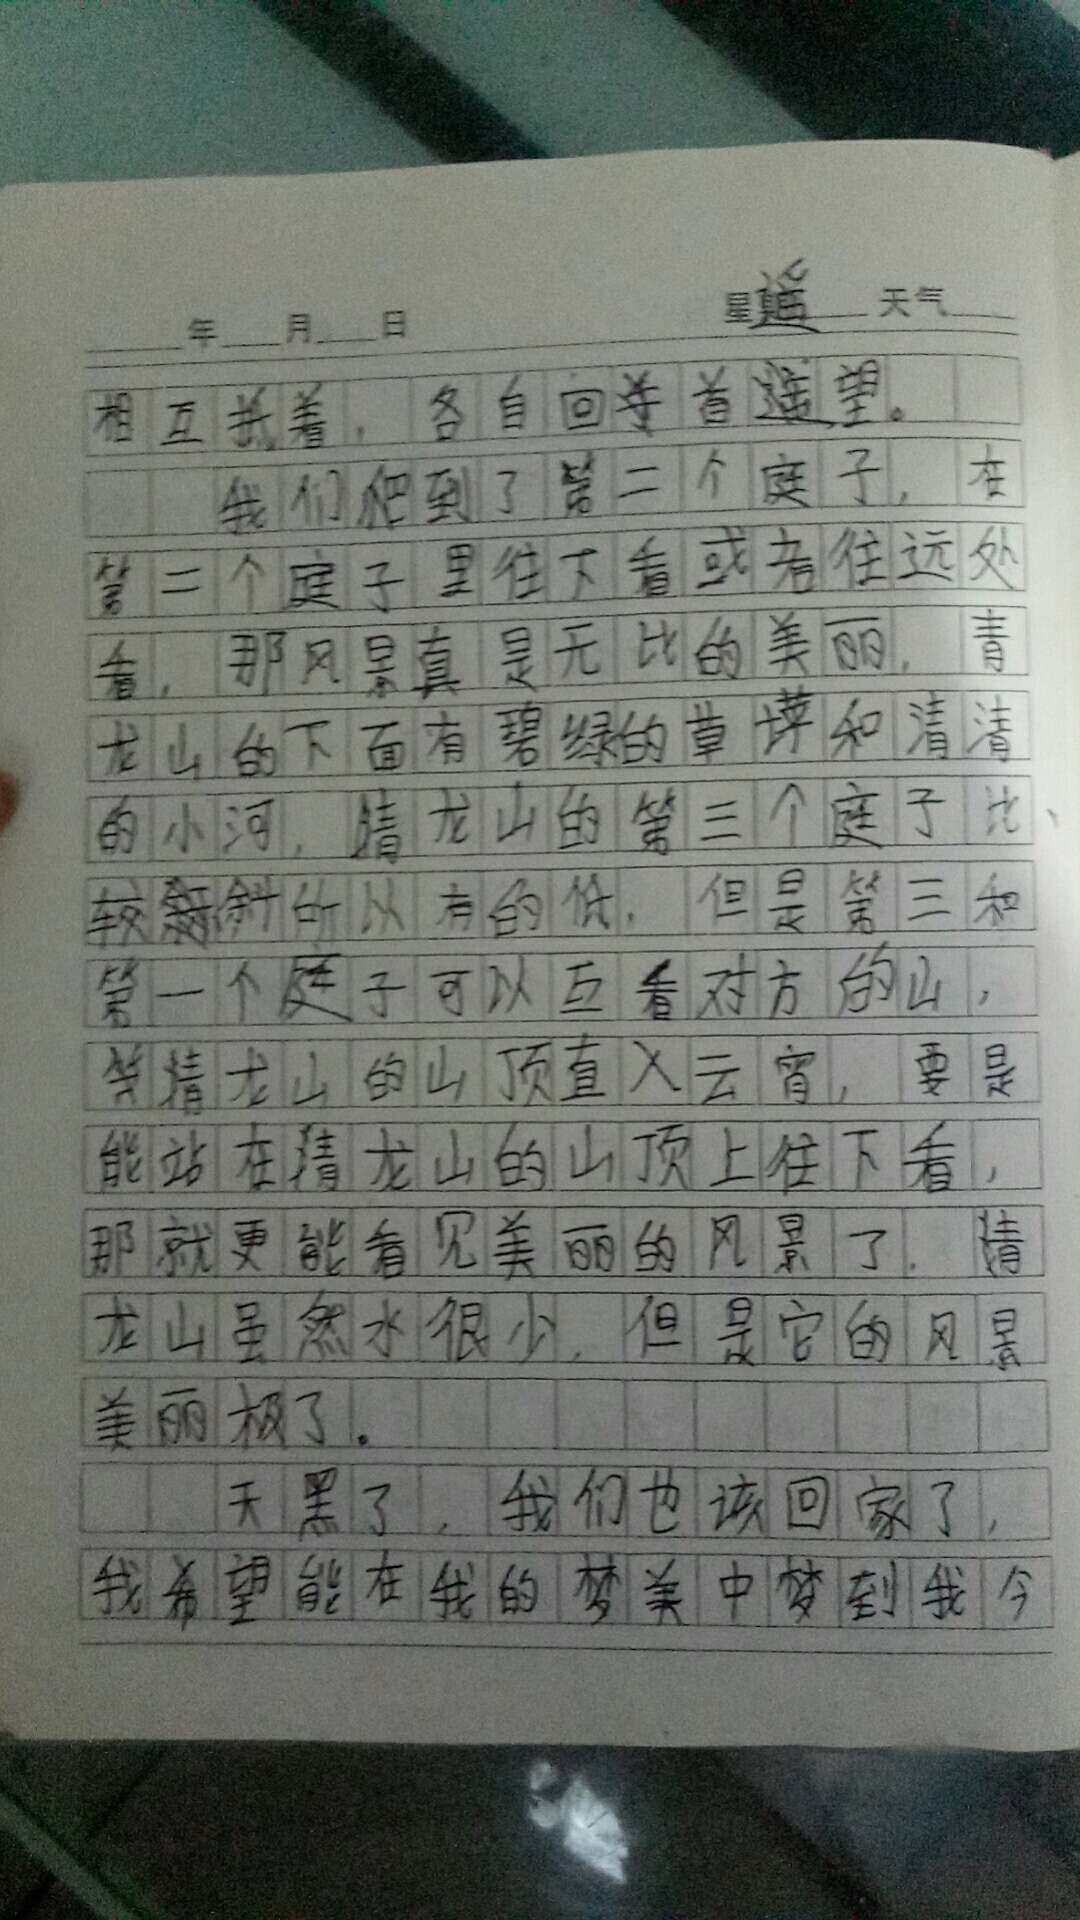 年 月 日 星 遥 天气
相互找着，各自回首遥望。
我们爬到了第二个庭子，在
第二个庭子里往下看或者往远处
看，那风景真是无比的美丽，青
龙山的下面有碧绿的草坪和清清
的小河，清龙山的第三个庭子比
较斜所以有的低，但是第三和
第一个庭子可以互看对方的山，
清龙山的山顶直入云宵，要是
能站在清龙山的山顶上往下看，
那就更能看见美丽的风景了，清
龙山虽然水很少，但是它的风景
美丽极了。
天黑了，我们也该回家了，
我希望能在我的梦美中梦到我今